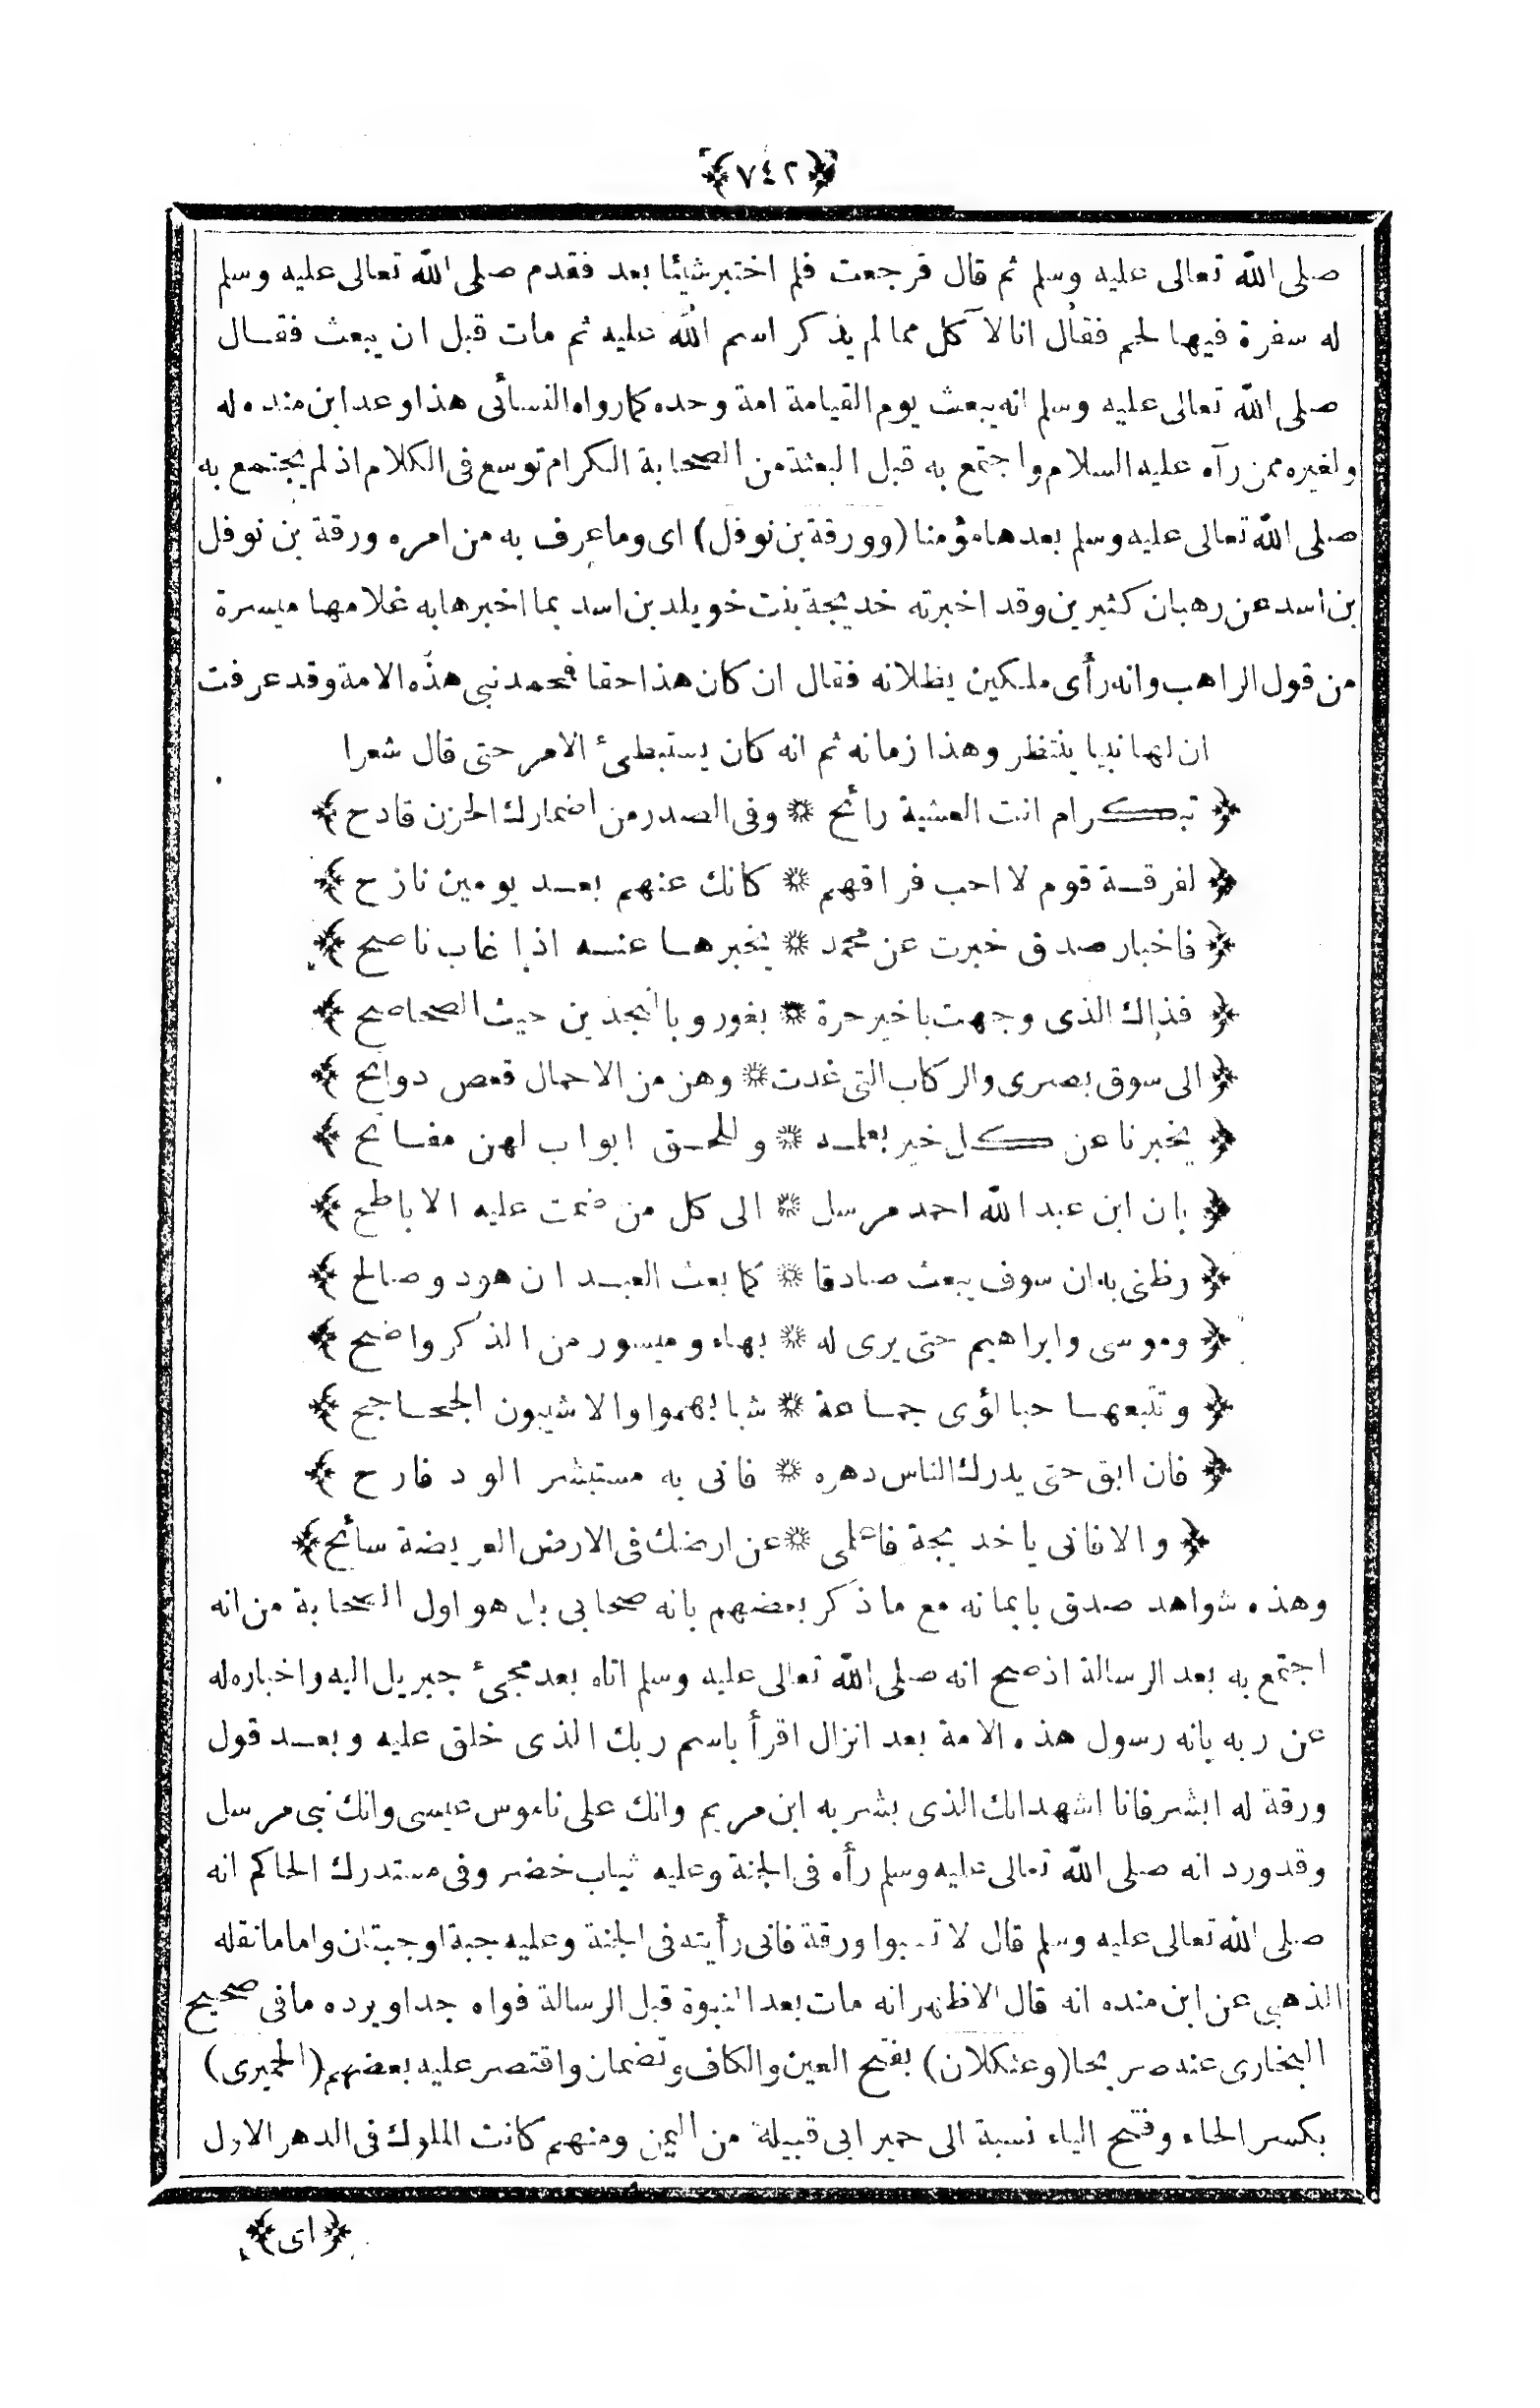 ﴿٧٤٢﴾
صلى الله تعالى عليه وسلم ثم قال فرجعت فلم اختبر شيئا بعد فقدم صلى الله تعالى عليه وسلم
له سفرة فيها لحم فقال انا لا آكل مما لم يذكر اسم الله عليه ثم مات قبل ان يبعث فقال
صلى الله تعالى عليه وسلم انه يبعث يوم القيامة امة وحده كما رواه النسائى هذا وعد ابن منده له
ولغيره ممن رآه عليه السلام واجتمع به قبل البعثة من الصحابة الكرام توسع فى الكلام اذ لم يجتمع به
صلى الله تعالى عليه وسلم بعدها مؤمنا (وورقة بن نوفل) اى وما عرف به من امره ورقة بن نوفل
بن اسد عن رهبان كثيرين وقد اخبرته خديجة بنت خويلد بن اسد بما اخبرها به غلامها ميسرة
من قول الراهب وانه رأى ملكين يظلانه فقال ان كان هذا حقا فمحمد نبى هذه الامة وقد عرفت
ان لها نبيا ينتظر وهذا زمانه ثم انه كان يستبطئ الامر حتى قال شعرا
﴿ تبكرام انت العشية رائح ❊ وفى الصدر من اضمارك الحزن قادح ﴾
﴿ لفرقة قوم لا احب فراقهم ❊ كانك عنهم بعد يومين نازح ﴾
﴿ فاخبار صدق خبرت عن محمد ❊ يخبرها عنه اذا غاب ناصح ﴾
﴿ فذاك الذى وجهت ياخير حرة ❊ بغور وبالنجدين حيث الصحاصح ﴾
﴿ الى سوق بصرى والركاب التى غدت ❊ وهن من الاحمال قعص دوائح ﴾
﴿ يخبرنا عن كل خير بعلمه ❊ وللحق ابواب لهن مفاتح ﴾
﴿ بان ابن عبد الله احمد مرسل ❊ الى كل من ضمت عليه الاباطح ﴾
﴿ وظنى به ان سوف يبعث صادقا ❊ كما بعث العبدان هود وصالح ﴾
﴿ وموسى وابراهيم حتى يرى له ❊ بهاء وميسور من الذكر واضح ﴾
﴿ وتتبعها حبا لؤى جماعة ❊ شبابهموا والاشيبون الجحاجح ﴾
﴿ فان ابق حتى يدرك الناس دهره ❊ فانى به مستبشر الود فارح ﴾
﴿ والا فانى يا خديجة فاعلمى ❊ عن ارضك فى الارض العريضة سائح ﴾
وهذه شواهد صدق بايمانه مع ما ذكر بعضهم بانه صحابى بل هو اول الصحابة من انه
اجتمع به بعد الرسالة اذ صح انه صلى الله تعالى عليه وسلم اتاه بعد مجئ جبريل اليه واخباره له
عن ربه بانه رسول هذه الامة بعد انزال اقرأ باسم ربك الذى خلق عليه وبعد قول
ورقة له ابشر فانا اشهد انك الذى بشر به ابن مريم وانك على ناموس عيسى وانك نبى مرسل
وقد ورد انه صلى الله تعالى عليه وسلم رأه فى الجنة وعليه ثياب خضر وفى مستدرك الحاكم انه
صلى الله تعالى عليه وسلم قال لا تسبوا ورقة فانى رأيته فى الجنة وعليه جبة او جبتان واما ما نقله
الذهبى عن ابن منده انه قال الاظهر انه مات بعد النبوة قبل الرسالة فواه جدا ويرده ما فى صحيح
البخارى عنه صريحا (وعثكلان) بفتح العين والكاف وتضمان واقتصر عليه بعضهم (الحميرى)
بكسر الحاء وفتح الياء نسبة الى حمير ابى قبيلة من اليمن ومنهم كانت الملوك فى الدهر الاول
﴿ اى ﴾